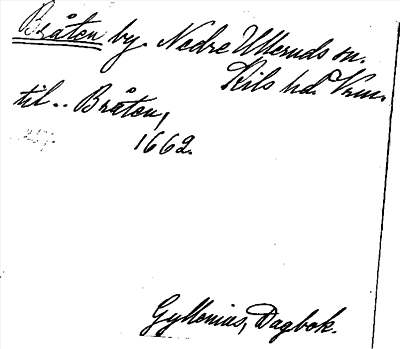 Bråten by. Nedre Ulleruds sn.
Kils hd. Vrm.
til.. Bråten,
1662.
Gyllenius, Dagbok.